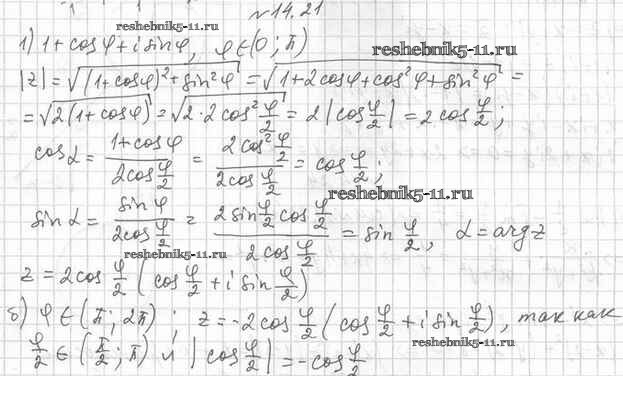 №14.21
reshebnik5-11.ru
1) 1+cosφ+i sinφ, φ∈(0; π)
reshebnik5-11.ru
|z|=√((1+cosφ)²+sin²φ) = √(1+2cosφ+cos²φ+sin²φ) =
=√(2(1+cosφ)) = √(2·2cos²φ/2) = 2|cosφ/2| = 2cosφ/2;
cosα = (1+cosφ)/(2cosφ/2) = (2cos²φ/2)/(2cosφ/2) = cosφ/2;
reshebnik5-11.ru
sinα = sinφ/(2cosφ/2) = (2sinφ/2 cosφ/2)/(2cosφ/2) = sinφ/2, α=argz
reshebnik5-11.ru
z=2cosφ/2 (cosφ/2 + i sinφ/2)
б) φ∈(π; 2π); z=-2cosφ/2 (cosφ/2 + i sinφ/2), так как
φ/2∈(π/2; π) и |cosφ/2| = -cosφ/2
reshebnik5-11.ru
reshebnik5-11.ru